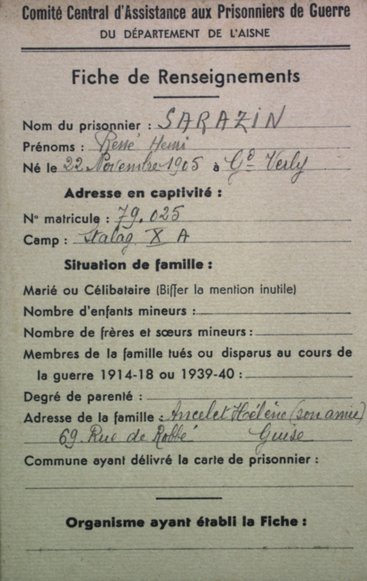 Comité Central d'Assistance aux Prisonniers de Guerre
DU DÉPARTEMENT DE L'AISNE
Fiche de Renseignements
Nom du prisonnier : SARAZIN
Prénoms : René Henri
Né le 22 Novembre 1905 à Gd Verly
Adresse en captivité :
N° matricule : 79.025
Camp : Stalag X A
Situation de famille :
Marié ou Célibataire (Biffer la mention inutile)
Nombre d'enfants mineurs :
Nombre de frères et sœurs mineurs :
Membres de la famille tués ou disparus au cours de
la guerre 1914-18 ou 1939-40 :
Degré de parenté :
Adresse de la famille : Ancelet Hélène (son amie)
69 Rue de Robbé Guise
Commune ayant délivré la carte de prisonnier :
Organisme ayant établi la Fiche :